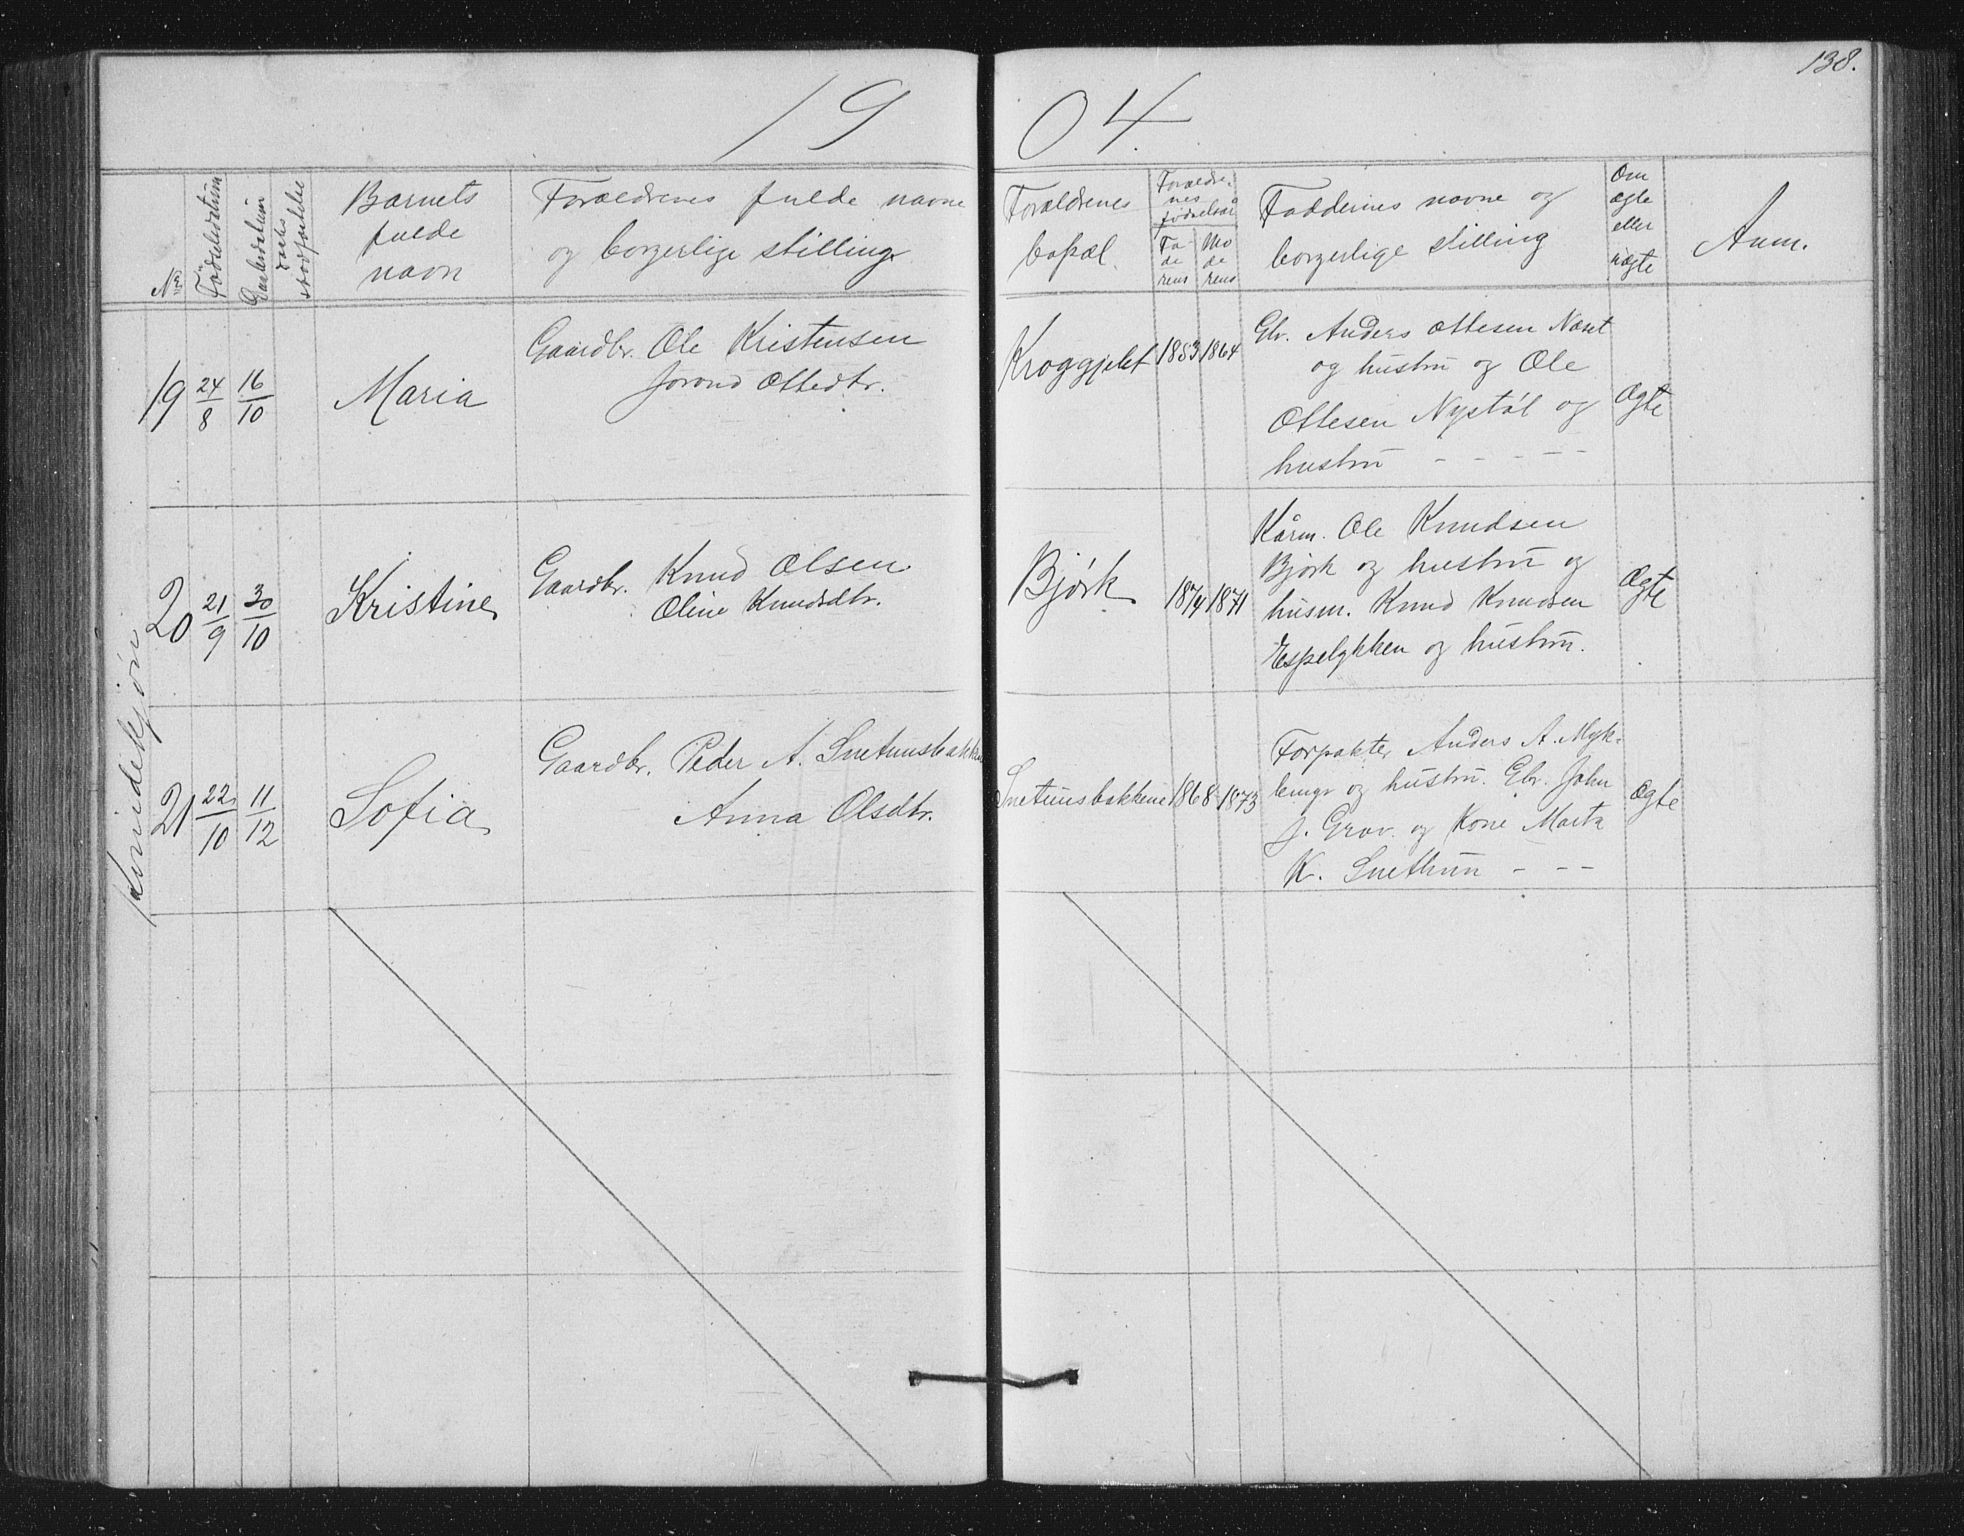 138.
1904.
No
Fødselsdatum
Daabsdatum
Barnets
fulde
navn
Forældrenes fulde navne
og borgerlige stilling
Forældrenes
bopæl.
Forældre-
nes
fødselsår
Fa-
de
rens
Mo
de
rens
Faddernes navne og
borgerlige stilling
Om
ægte
eller
uægte
Anm.
Kvindekjøn
19 24/8 16/10 Maria
Gaardbr. Ole Kristensen
Jorond Ottedtr.
Kroggjelet 1853 1864
Gbr. Anders Ottesen Næset
og hustru og Ole
Ottesen Nystøl og
hustru - - - - -
Ægte
20 21/9 30/10 Kristine
Gaardbr. Knud Olsen
Oline Knudsdtr.
Bjørk 1874 1871
Kårm. Ole Knudsen
Bjørk og hustru og
husm. Knud Knudsen
Espelykken og hustru.
Ægte
21 22/10 11/12 Sofia
Gaardbr. Peder A. Snetunsbakken
Anna Olsdtr.
Snetunsbakkene 1868 1873
Forpakter Anders A. Myk-
lengr og hustru. Gbr. John
J. Grov og Kone Marta
K. Snethun - - -
Ægte